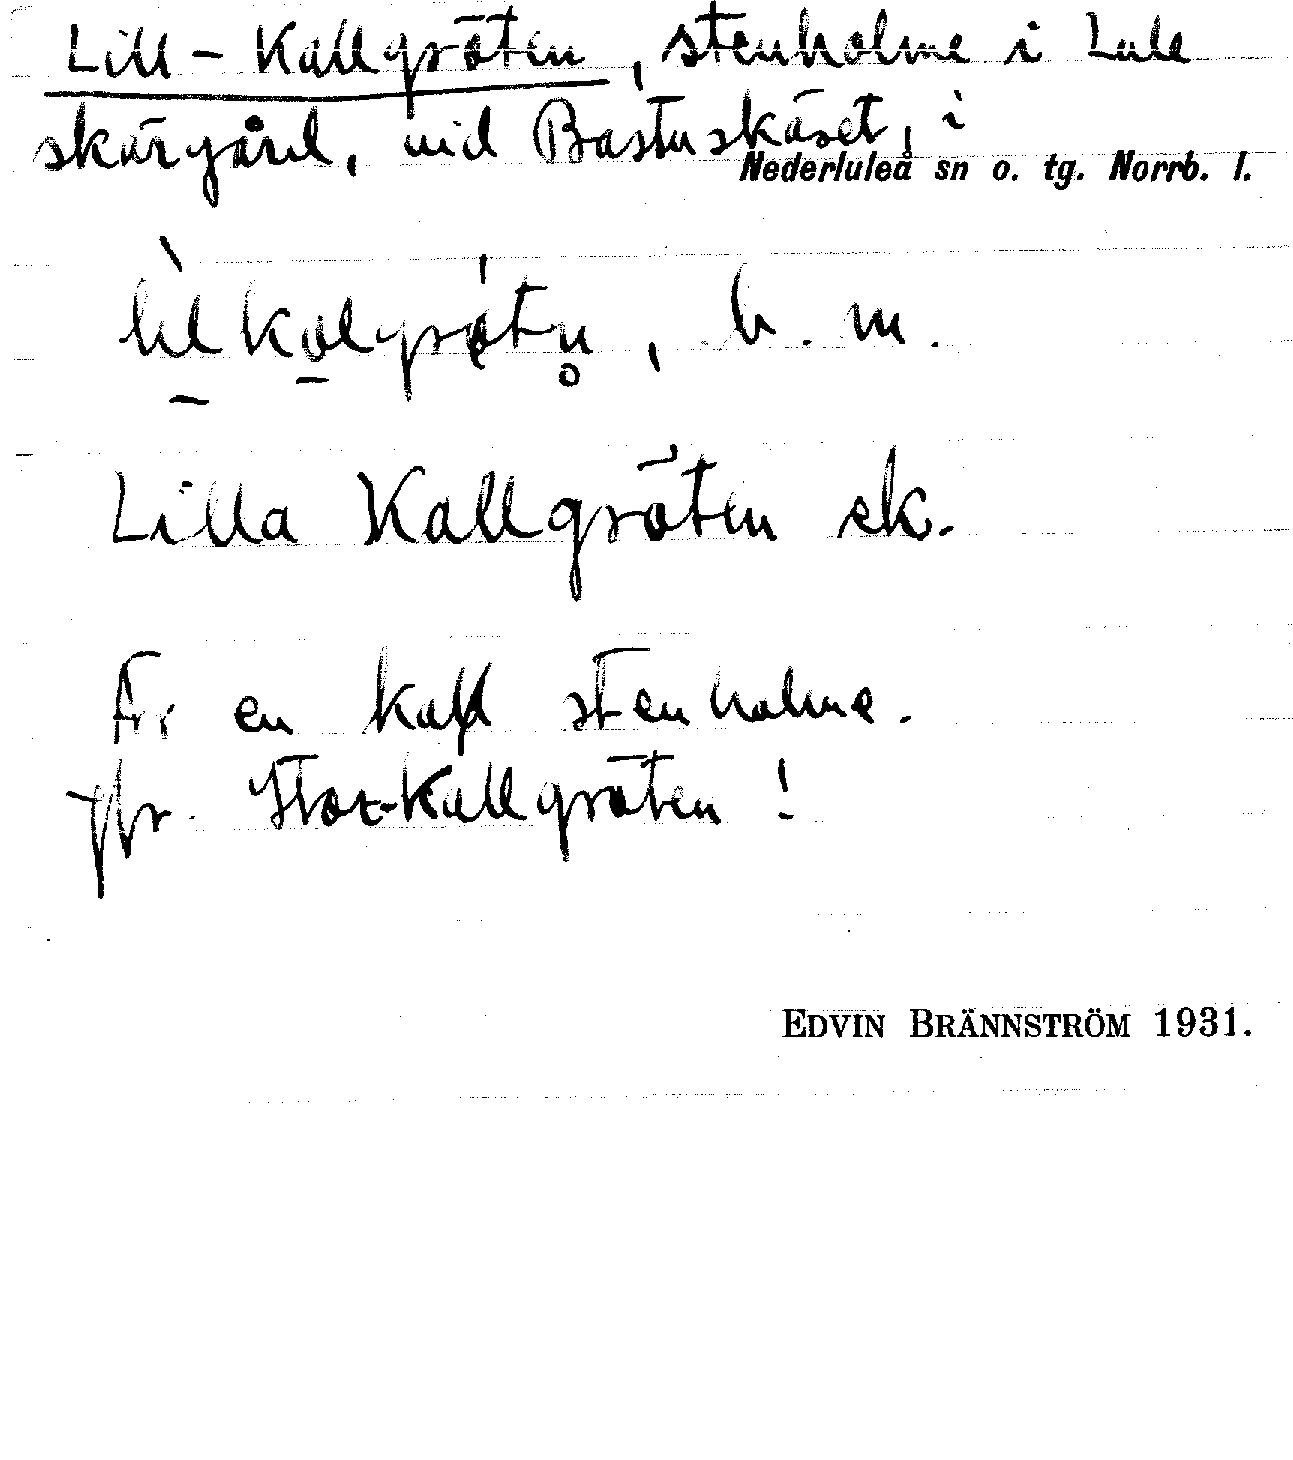 Lill-Kallgröten, stenholme i Lule
skärgård, vid Bastuskäret, i
Nederluleå sn o. tg. Norrb. l.
b. m.
Lilla Kallgröten sk.
Är en kall stenholme.
jfr. Stor-Kallgröten!
EDVIN BRÄNNSTRÖM 1931.